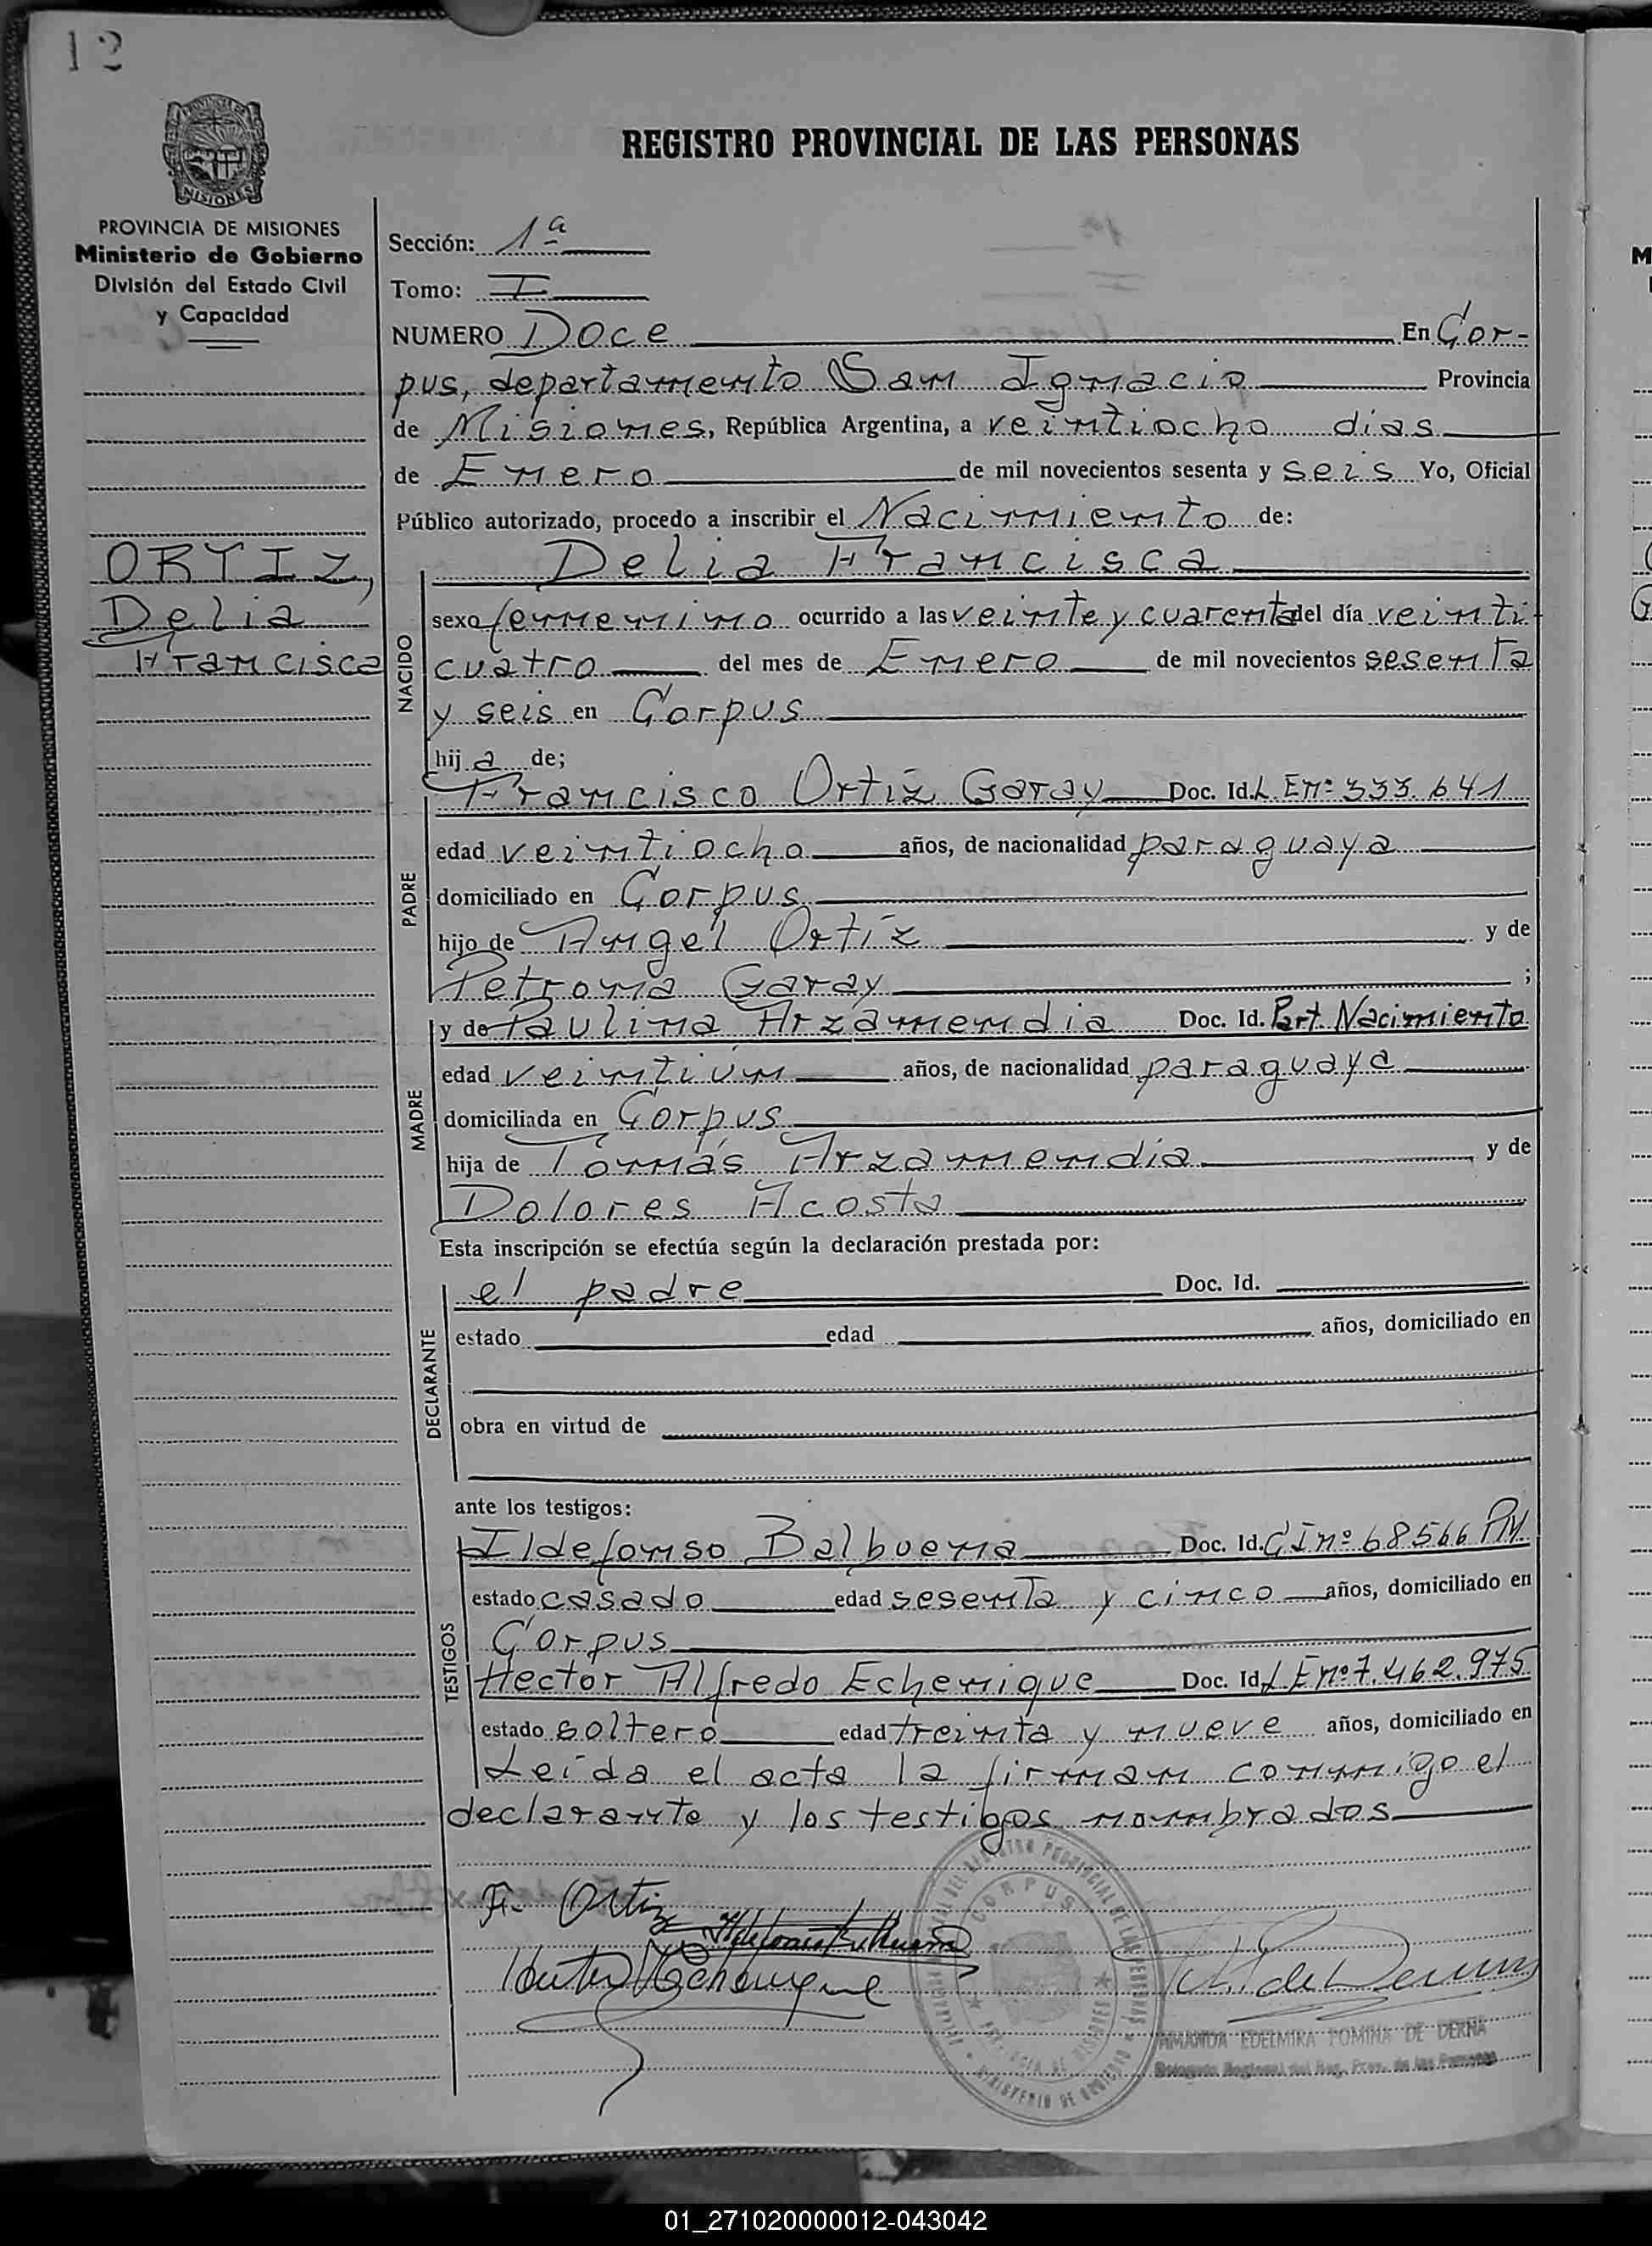 12
PROVINCIA DE MISIONES
Ministerio de Gobierno
División del Estado Civil
y Capacidad
ORTIZ,
Delia
Francisca
REGISTRO PROVINCIAL DE LAS PERSONAS
Sección: 1ª
Tomo: I
NUMERO Doce En Cor-
pus, departamento San Ignacio Provincia
de Misiones, República Argentina, a veintiocho dias
de Enero de mil novecientos sesenta y seis Yo, Oficial
Público autorizado, procedo a inscribir el Nacimiento de:
NACIDO
Delia Francisca
sexo femenino ocurrido a las veinte y cuarenta del día veinti
cuatro del mes de Enero de mil novecientos sesenta
y seis en Corpus
hija de;
PADRE
Francisco Ortíz Garay Doc. Id. L. E nº 333.641
edad veintiocho años, de nacionalidad paraguaya
domiciliado en Corpus
hijo de Angel Ortíz y de
Petrona Garay ;
MADRE
y de Paulina Arzamendia Doc. Id. Part. Nacimiento
edad veintiún años, de nacionalidad paraguaya
domiciliada en Corpus
hija de Tomás Arzamendia y de
Dolores Acosta
Esta inscripción se efectúa según la declaración prestada por:
DECLARANTE
el padre Doc. Id.
estado edad años, domiciliado en
obra en virtud de
ante los testigos:
TESTIGOS
Ildefonso Balbuena Doc. Id. C I nº 68566 PM
estado casado edad sesenta y cinco años, domiciliado en
Corpus
Hector Alfredo Echenique Doc. Id. L E nº 7.462.975
estado soltero edad treinta y nueve años, domiciliado en
Leída el acta la firman conmigo el
declarante y los testigos nombrados
F. Ortiz
CORPUS
AMANDA EDELMIRA TOMINA DE DERNA
Delegada Regional del Reg. Prov. de las Personas
01_271020000012-043042